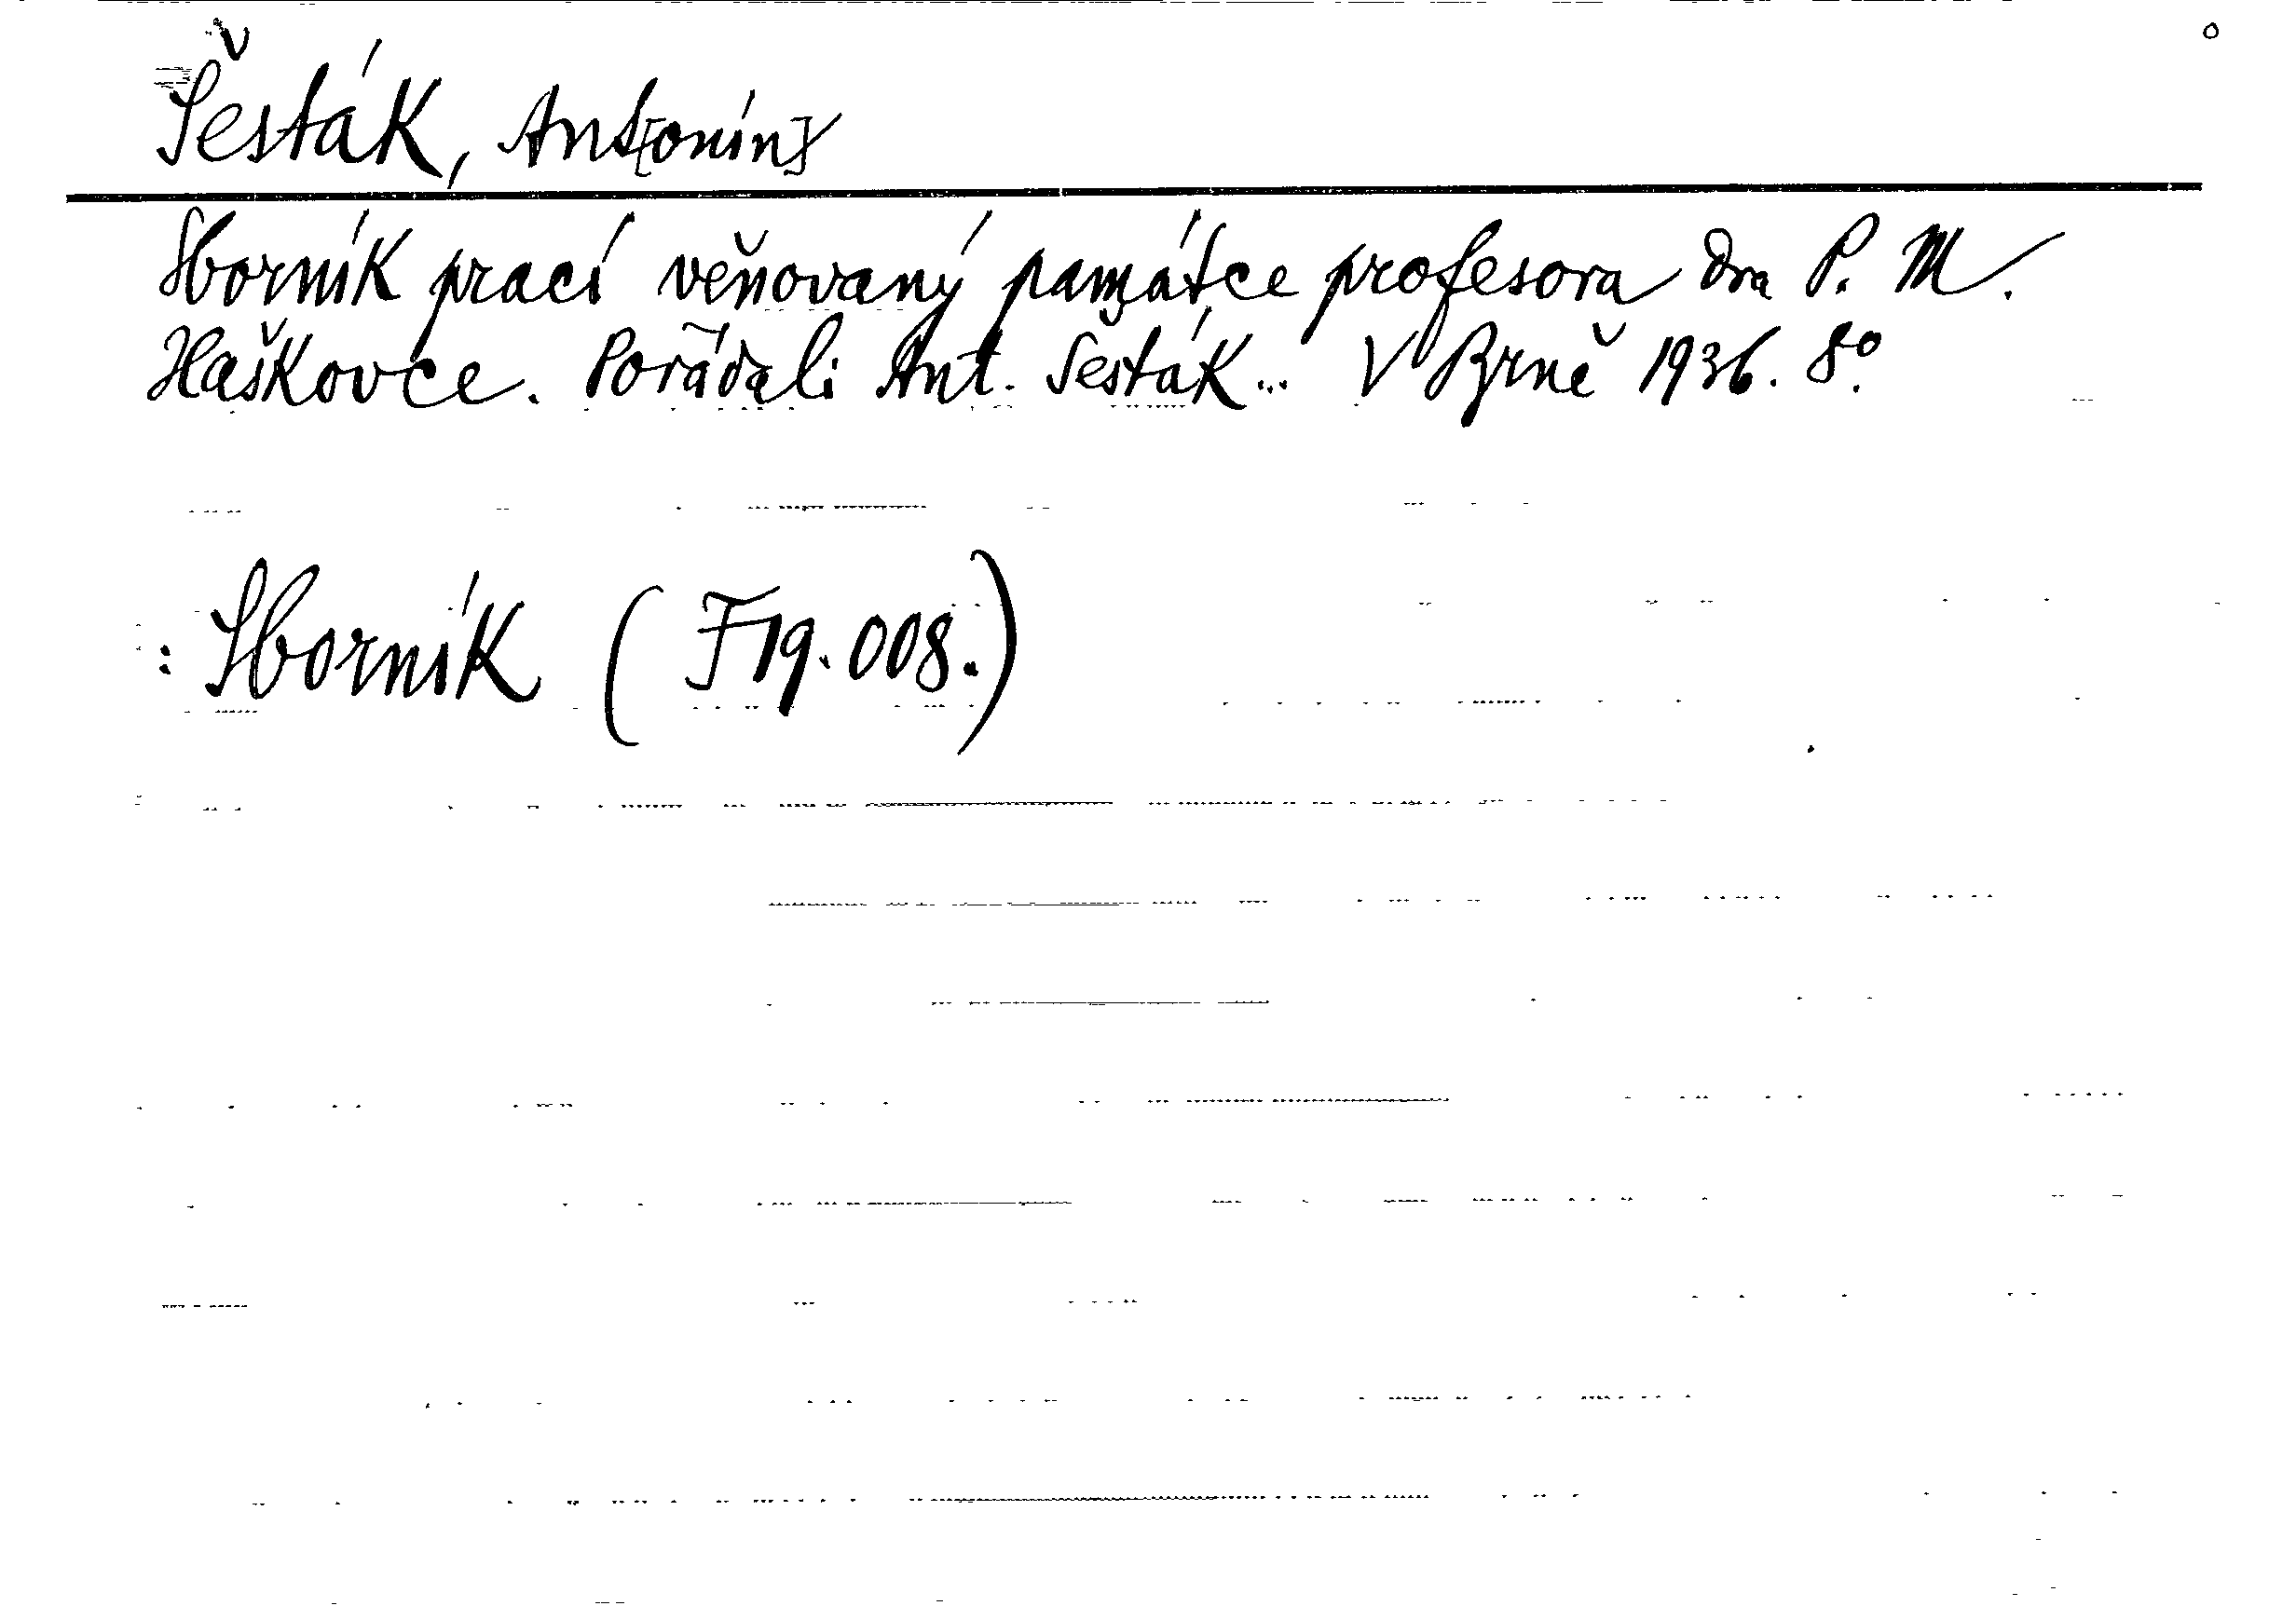 Šesták, Ant[onín]
Sborník prací věňovaný památce profesora dra P. M.
Haškovce. Pořádali Ant. Šesták... V Brně 1936. 8°.
: Sborník ( F19.008.)